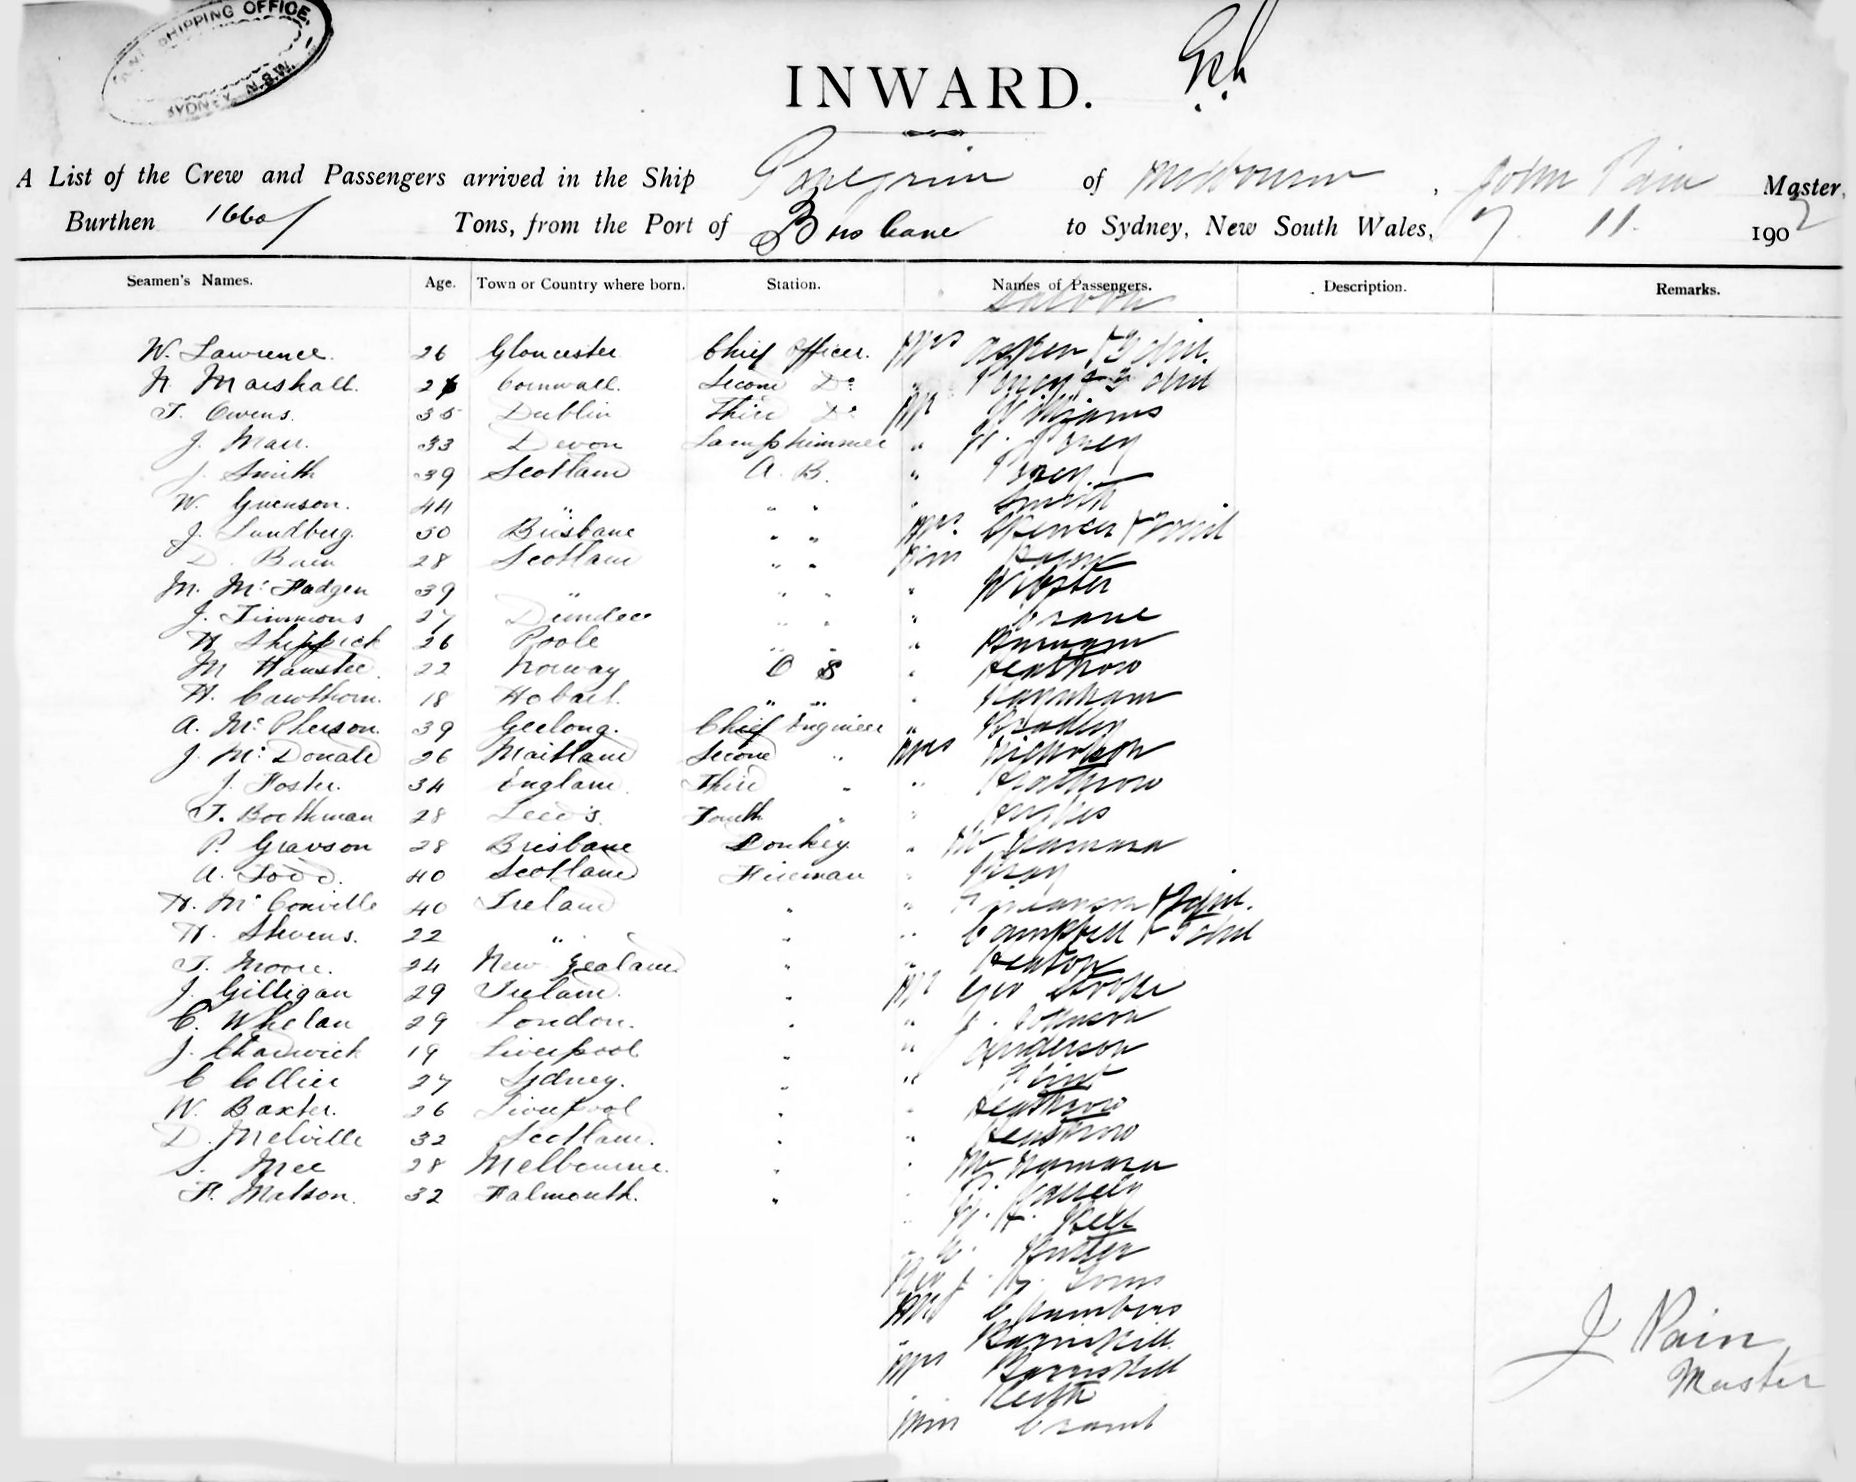 SHIPPING OFFICE,
N.S.W.
INWARD.
A List of the Crew and Passengers arrived in the Ship Peregrine of Melbourne, John Pain Master,
Burthen 1660 Tons, from the Port of Brisbane to Sydney, New South Wales, 7. 11. 1902
Seamen's Names. Age. Town or Country where born. Station. Names of Passengers. Description. Remarks.
Saloon
W. Lawrence. 26 Gloucester Chief Officer. Mrs
H. Marshall. 26 Cornwall. Second Do
T. Owens. 35 Dublin Third Do Mr Williams
J. Marr. 33 Devon Lamptrimmer "
J. Smith 39 Scotland A. B. "
W. Guenson. 44 " " " " Smith
J. Lundberg. 30 Brisbane " " Mrs. Spencer & Child
D. Bain 28 Scotland " " Miss
M. McFadgen 39 " " " " Webster
J. Timmons 27 Dundee " " " Crane
H Shippick 26 Poole " " "
M Hanstee. 22 Norway O S " Heathrow
H. Cawthorn. 18 Hobart. " " " Farnham
A. McPherson. 39 Geelong. Chief Engineer " Bradley
J. McDonald 26 Maitland Second " Mrs Nicholson
J. Foster. 34 England Third " " Heathrow
T. Boothman 28 Leeds. Fourth " " Hughes
P. Gravson 28 Brisbane Donkey " McNamara
A. Todd. 40 Scotland Fireman " Gray
H. McConville 40 Ireland " " & Child.
H. Stevens. 22 " " " Campbell & Child
T. Moore. 24 New Zealand " " Heaton
J. Gilligan 29 Ireland. " Mr Geo
C. Whelan 29 London. " " J. Johnson
J. Chadwick 19 Liverpool " " Anderson
C Collier 27 Sydney. " " Flint
W. Baxter. 26 Liverpool " " Heathrow
D. Melville 32 Scotland. " " Heathrow
S. Mee 28 Melbourne. " " McNamara
F. Matson. 32 Falmouth. "
" H. Bell
" W. Butler
Rev J.
Mrs Chambers
" Barnskill.
Mrs Barnskill
Keith
Miss Cramb
J Pain
Master